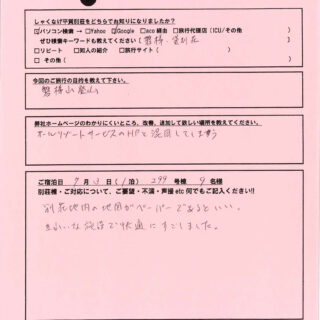 しゃくなげ平貸別荘をどちらでお知りになりましたか？
☑パソコン検索 → □Yahoo ☑Google □aco経由 □旅行代理店（ICU/その他）
ぜひ検索キーワードも教えてください（磐梯、貸別荘
□リピート □知人の紹介 □旅行サイト（ ）
□その他（ ）
今回のご旅行の目的を教えて下さい。
磐梯山登山
弊社ホームページのわかりにくいところ、改善、追加して欲しい場所を教えてください。
オールリゾートサービスのHPと混同してしまう
ご宿泊日 7月3日（1泊）299号棟 9名様
別荘棟・ご対応について、ご要望・不満・声援etc何でもご記入ください!!
別荘地内の地図がペーパーであるといい。
きれいな施設で快適にすごしました。